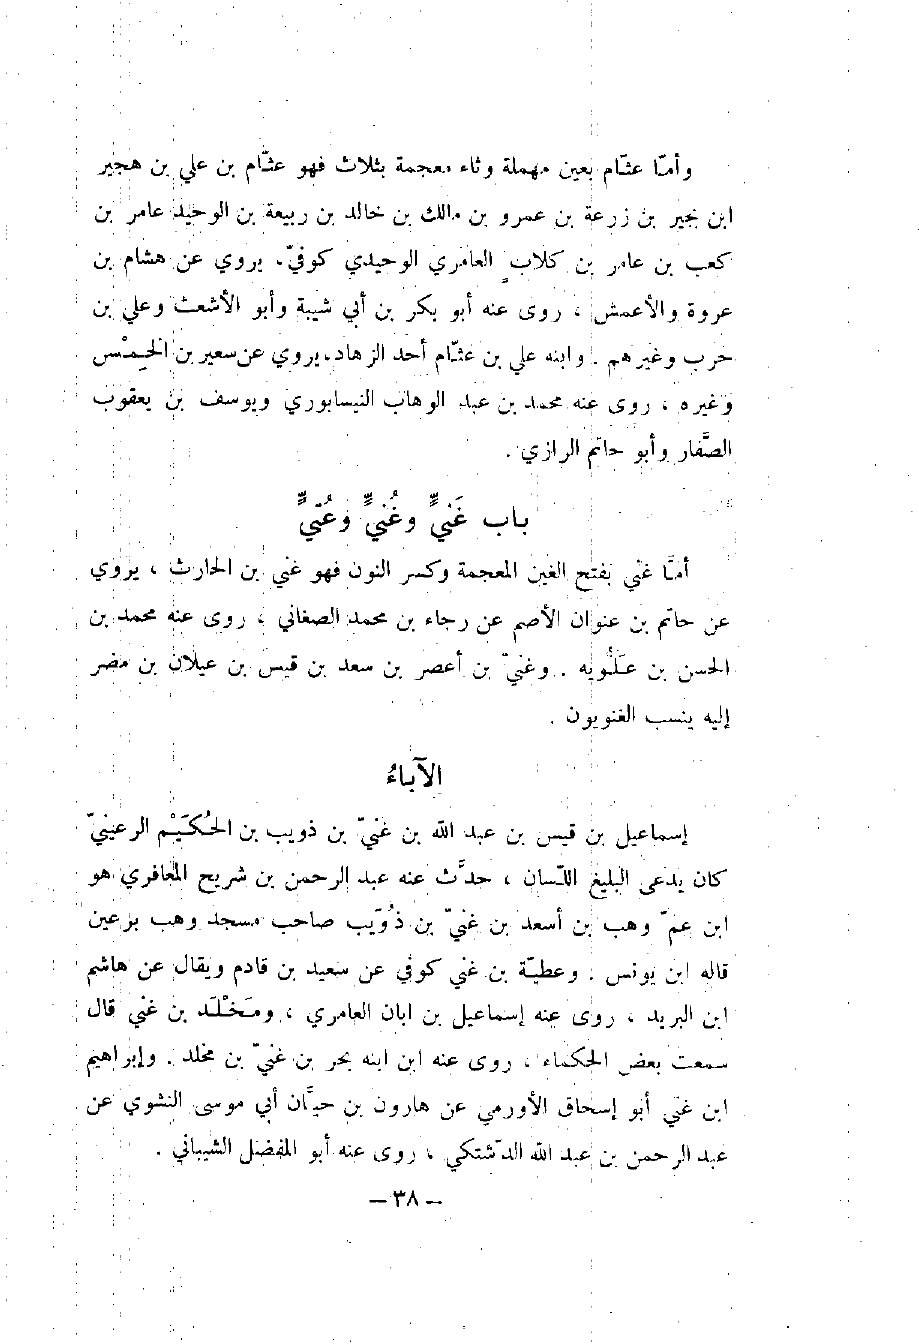 وأمّا عثّام بعين مهملة وثاء معجمة بثلاث فهو عثّام بن علي بن هجير
ابن بجير بن زرعة بن عمرو بن مالك بن خالد بن ربيعة بن الوحيد عامر بن
كعب بن عامر بن كلابٍ العامري الوحيدي كوفيّ، يروي عن هشام بن
عروة والأعمش ، روى عنه أبو بكر بن أبي شيبة وأبو الأشعث وعلي بن
حرب وغيرهم . وابنه علي بن عثّام أحد الزهاد، يروي عن سعير بن الخِمْس
وغيره ، روى عنه محمد بن عبد الوهاب النيسابوري ويوسف بن يعقوب
الصَّفار وأبو حاتم الرازي .
باب غَنيٍّ وغُنيٍّ وعُتيٍّ
أمّا غني بفتح الغين المعجمة وكسر النون فهو غني بن الحارث ، يروي
عن حاتم بن عنوان الأصم عن رجاء بن محمد الصغاني ، روى عنه محمد بن
الحسن بن عَلُّويه . وغنيّ بن أعصر بن سعد بن قيس بن عيلان بن مضر
إليه ينسب الغنويون .
الآباءُ
إسماعيل بن قيس بن عبد الله بن غنيّ بن ذويب بن الحُكَيْم الرعينيّ
كان يدعى البليغ اللّسان ، حدَّث عنه عبد الرحمن بن شريح المعافري هو
ابن عمّ وهب بن أسعد بن غنيّ بن ذُوَيب صاحب مسجد وهب برعين
قاله ابن يونس . وعطيّة بن غني كوفي عن سعيد بن قادم ويقال عن هاشم
ابن البريد ، روى عنه إسماعيل بن ابان العامري ، ومَخْلَد بن غني قال
سمعت بعض الحكماء ، روى عنه ابن ابنه بحر بن غنيّ بن مخلد . وإبراهيم
ابن غني أبو إسحاق الأورمي عن هارون بن حيَّان أبي موسى النشوي عن
عبد الرحمن بن عبد الله الدّشتكي ، روى عنه أبو المفضل الشيباني .
— ٣٨ —